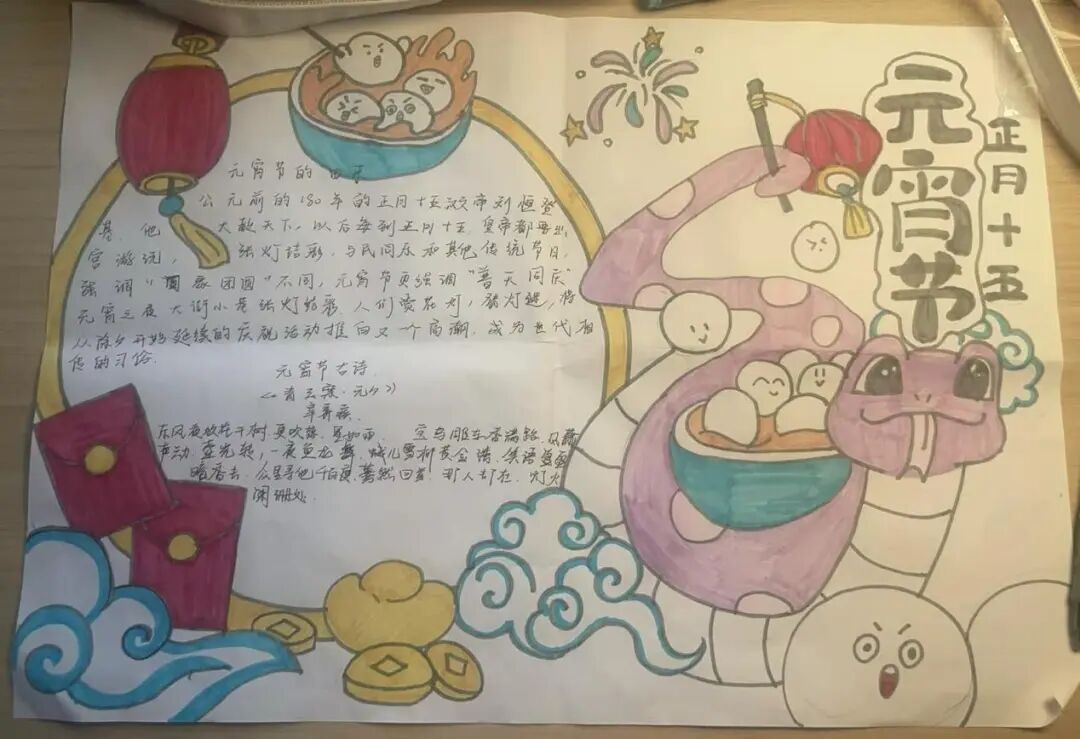 元宵节
正月十五
元宵节的由来
公元前的180年的正月十五汉帝刘恒登
基，他 大赦天下，以后每到正月十五，皇帝都要出
宫游玩， 张灯结彩，与民同乐和其他传统节日，
强调"阖家团圆"不同，元宵节更强调"普天同庆"
元宵之夜大街小巷张灯结彩，人们赏花灯，猜灯谜，将
从除夕开始延续的庆祝活动推向又一个高潮，成为世代相
传的习俗.
元宵节古诗.
《青玉案·元夕》
辛弃疾.
东风夜放花千树.更吹落，星如雨 宝马雕车香满路.凤箫
声动.壶光转，一夜鱼龙舞.蛾儿雪柳黄金缕.笑语盈盈
暗香去.众里寻他千百度.蓦然回首.那人却在.灯火
阑珊处.